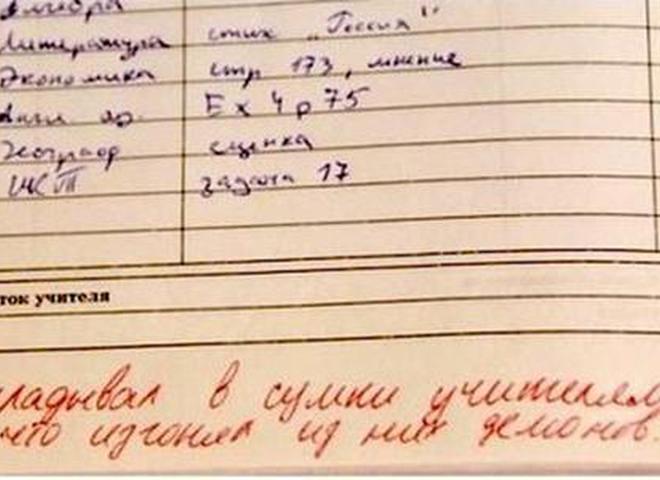 Алгебра
Литература стих „Россия"
Экономика стр 173, мнение
Англ. яз. Ex 4 p 75
Географ сценка
задача 17
ток учителя
ладывал в сумки учителям
что изгонял из них демонов.